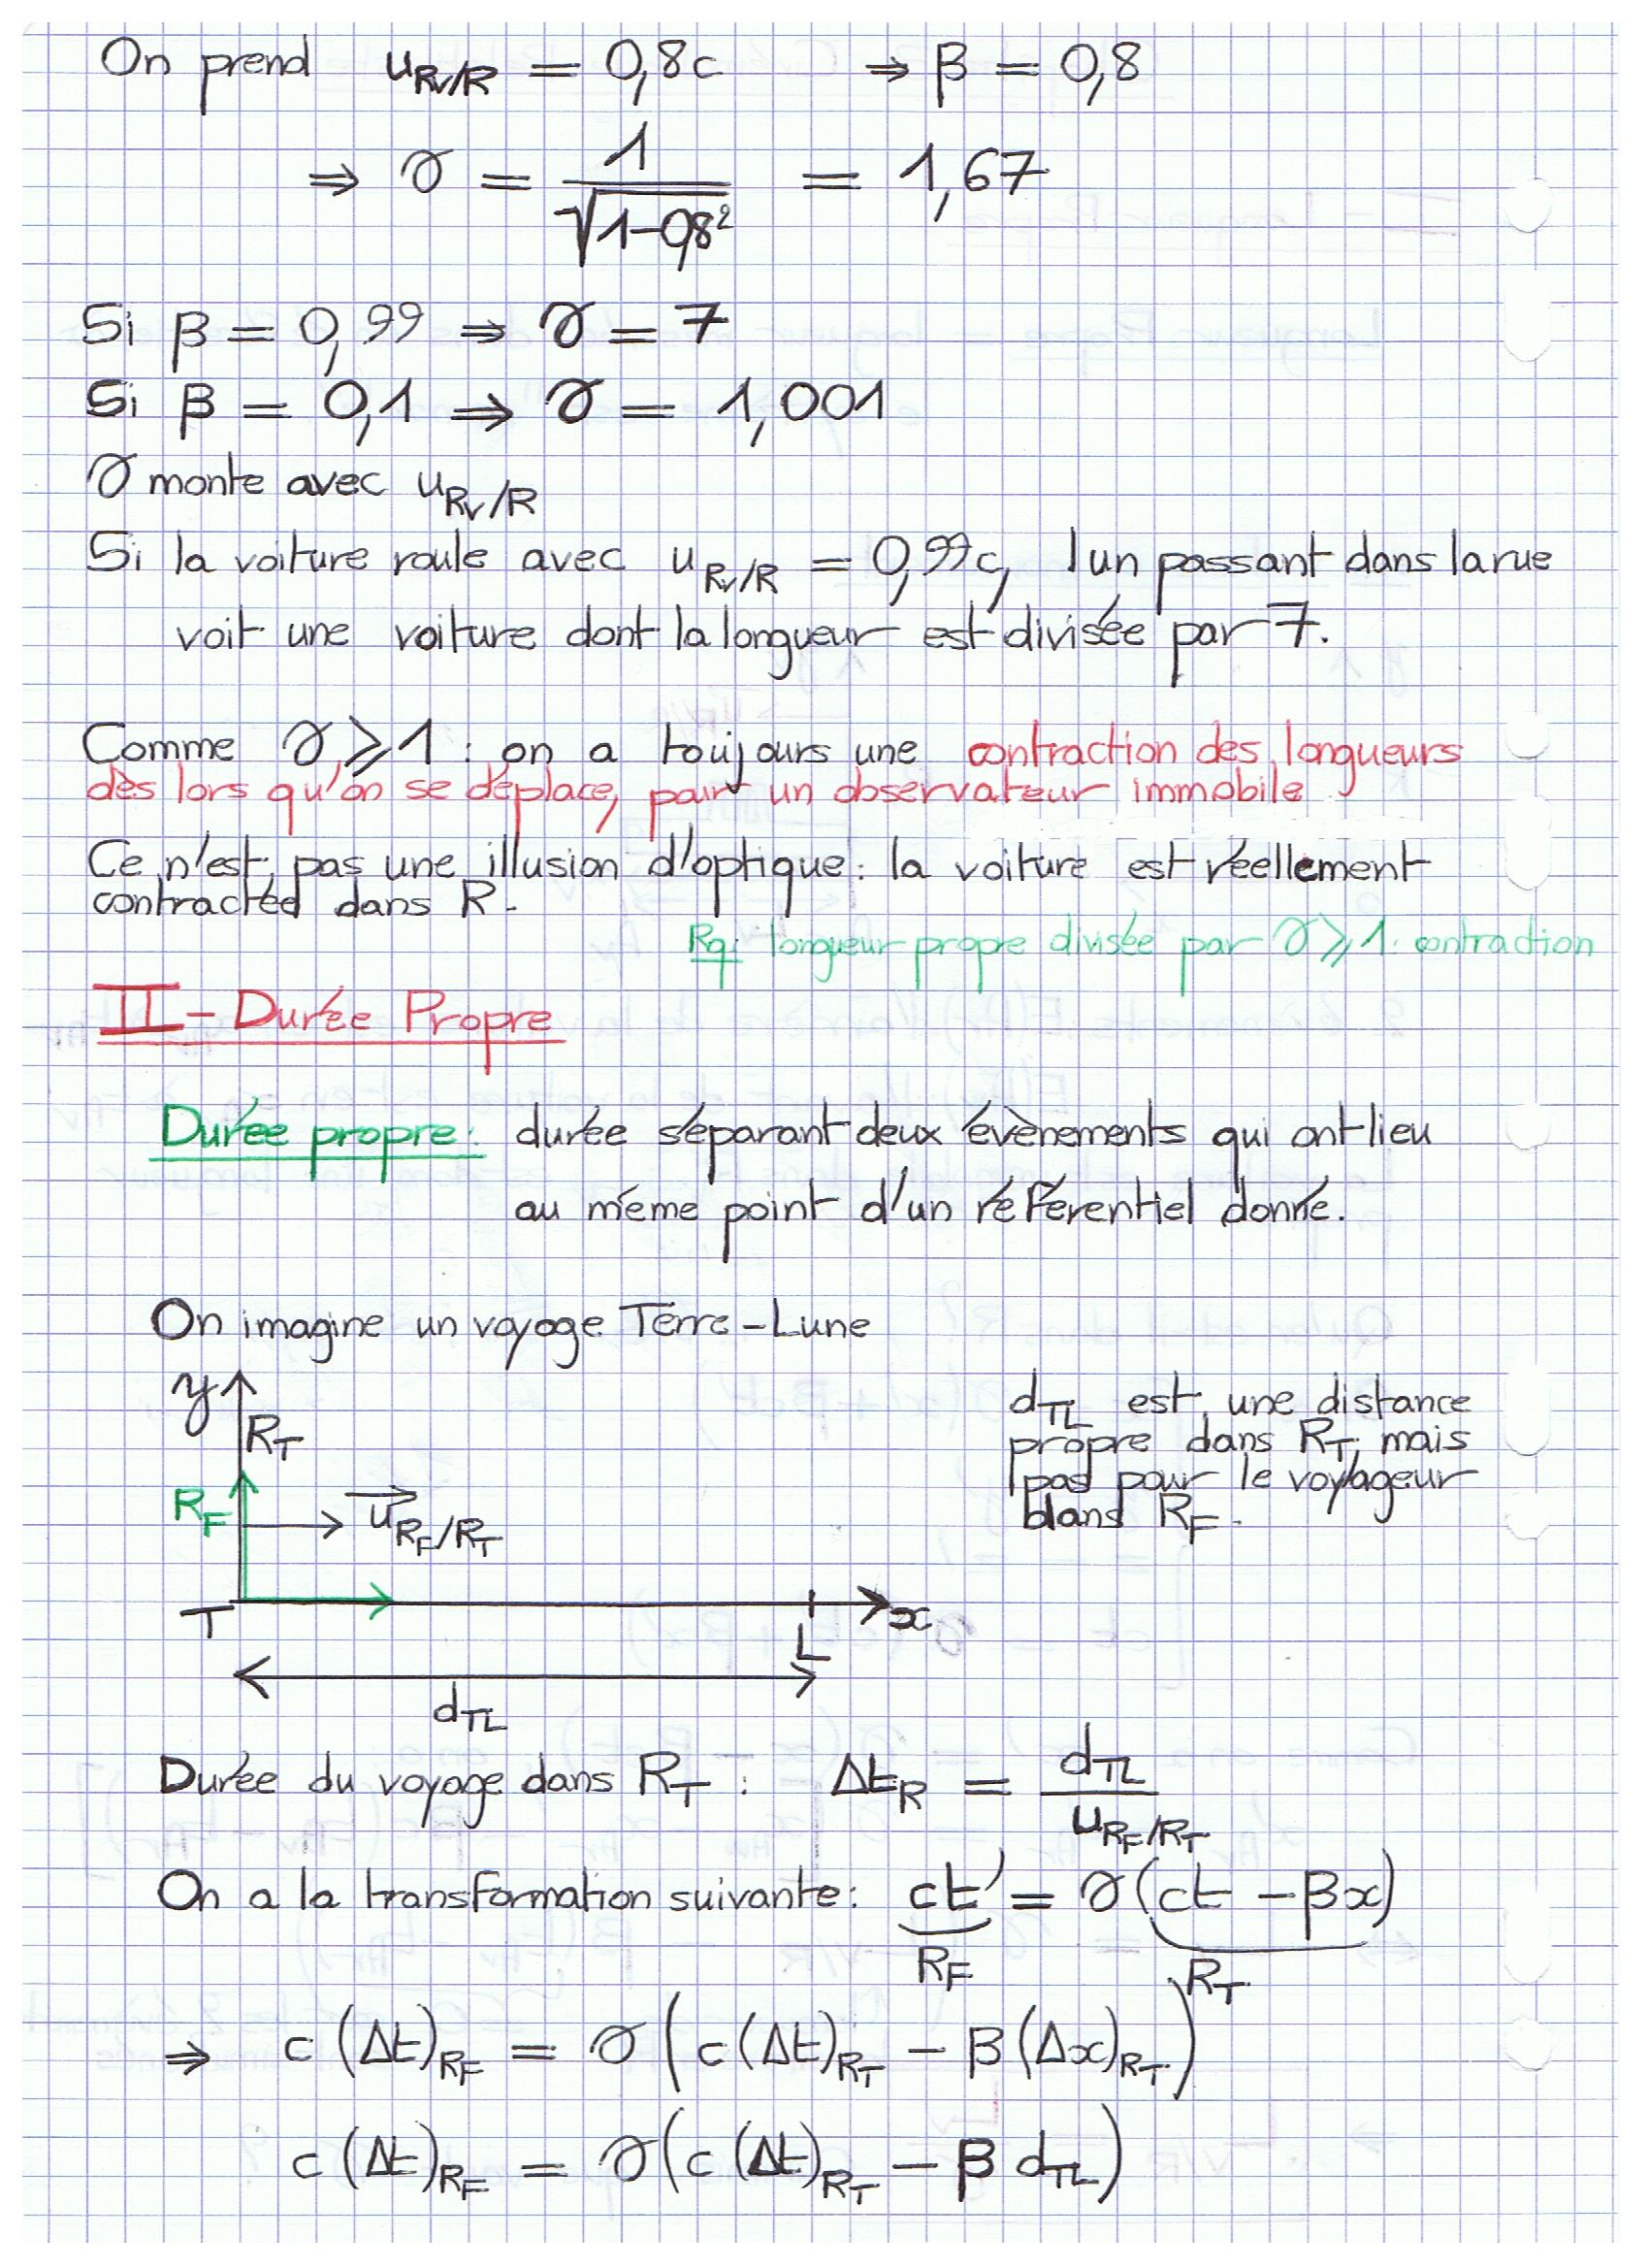 On prend u_{Rv/R} = 0,8c ⇒ β = 0,8
⇒ γ = 1/√(1-0,8²) = 1,67
Si β = 0,99 ⇒ γ = 7
Si β = 0,1 ⇒ γ = 1,001
γ monte avec u_{Rv/R}
Si la voiture roule avec u_{Rv/R} = 0,99c, un passant dans la rue
voit une voiture dont la longueur est divisée par 7.
Comme γ ⩾ 1 : on a toujours une contraction des longueurs
dès lors qu'on se déplace, pour un observateur immobile
Ce n'est pas une illusion d'optique : la voiture est réellement
contractée dans R.
Rq: longueur propre divisée par γ ⩾ 1: contraction
II - Durée Propre
Durée propre: durée séparant deux évènements qui ont lieu
au même point d'un référentiel donné.
On imagine un voyage Terre-Lune
y
R_T
d_{TL} est une distance
propre dans R_T, mais
pas pour le voyageur
dans R_F.
R_F
u_{R_F/R_T}
T
x
L
d_{TL}
Durée du voyage dans R_T : Δt_R = d_{TL}/u_{R_F/R_T}
On a la transformation suivante : ct' = γ(ct - βx)
R_F R_T
⇒ c(Δt)_{R_F} = γ(c(Δt)_{R_T} - β(Δx)_{R_T})
c(Δt)_{R_F} = γ(c(Δt)_{R_T} - β d_{TL})